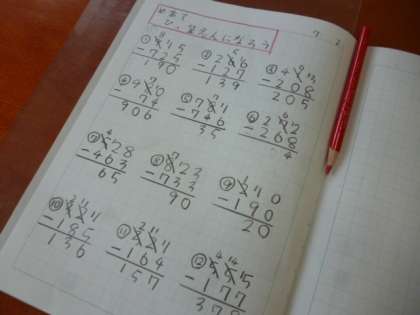 めあて
ひっ算名人になろう
① 8
915
-725
190
② 5
266
-127
139
③ 0
413
-208
205
④ 7
980
-74
906
⑤ 7
781
-746
35
⑥ 6
272
-268
4
⑦ 4
528
-463
65
⑧ 7
823
-733
90
⑨ 1
210
-190
20
⑩ 2 11
321
-185
136
⑪ 2 11
321
-164
157
⑫ 4 14
555
-177
378